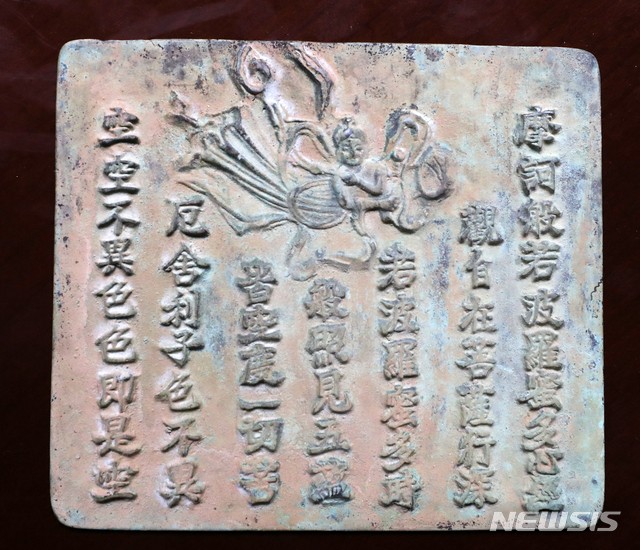 摩訶般若波羅蜜多心經
觀自在菩薩行深
若波羅蜜多時
般照見五蘊
皆空度一切苦
厄舍利子色不異
空空不異色色即是空
NEWSIS